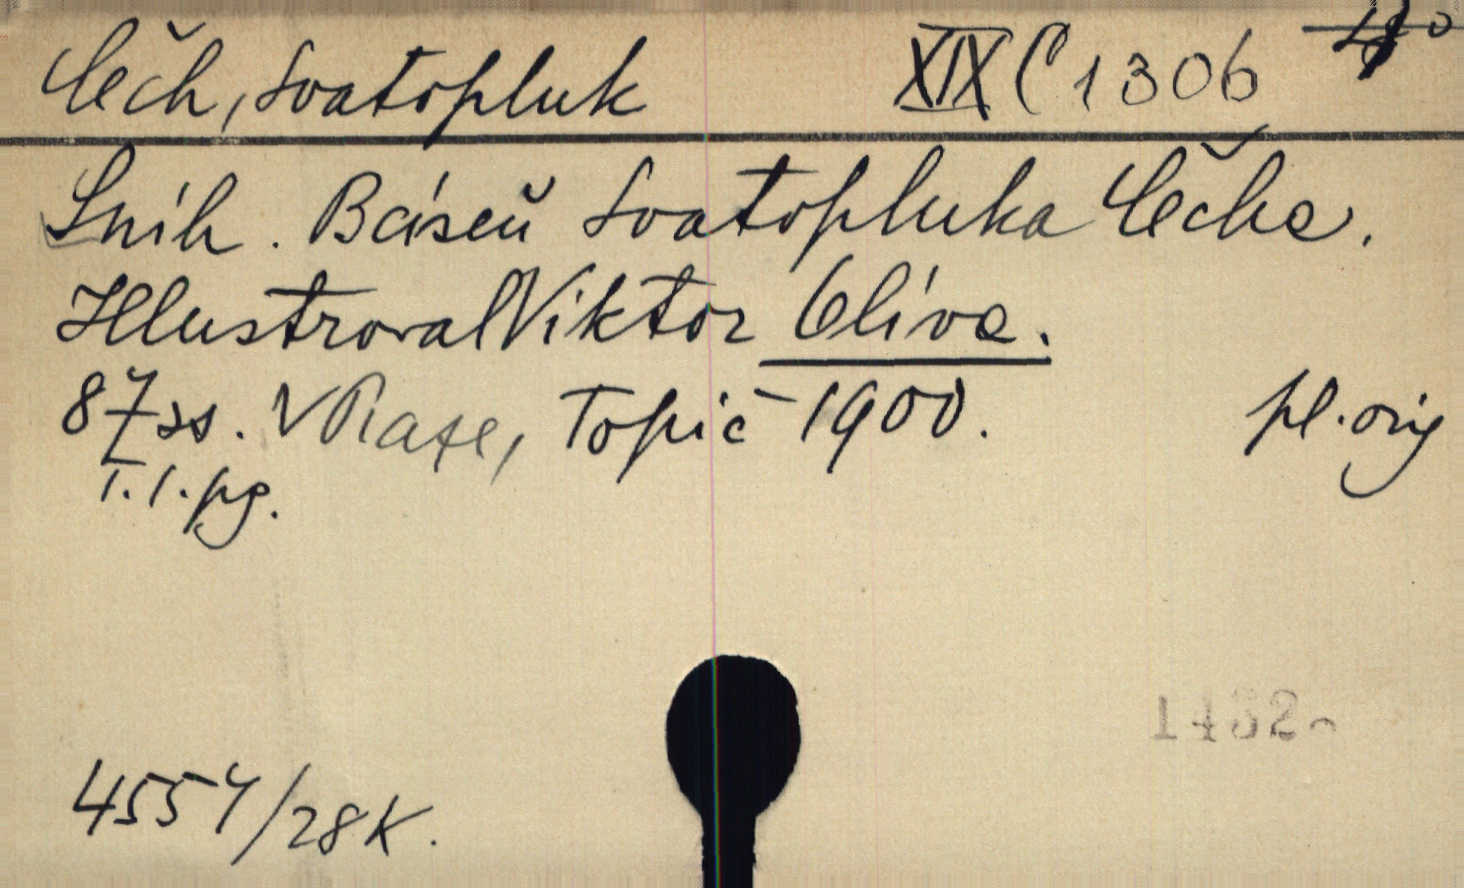 Čech, Svatopluk XIX C 1306
Sníh. Báseň Svatopluka Čecha.
Illustroval Viktor Oliva.
87 ss. V Praze, Topič 1900. pl. orig
T. 1. pg.
4557/28 K.